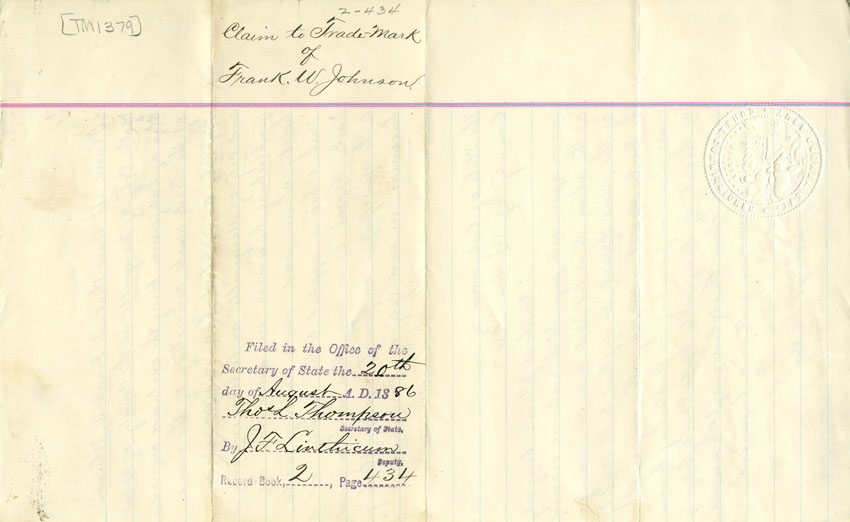 [TM1379]
2-434
Claim to Trade-Mark
of
Frank. W. Johnson.
Filed in the Office of the
Secretary of State the 20th
day of August A. D. 1886
Thos L Thompson
Secretary of State.
By J F Linthicum
Deputy.
Record Book, 2, Page 434